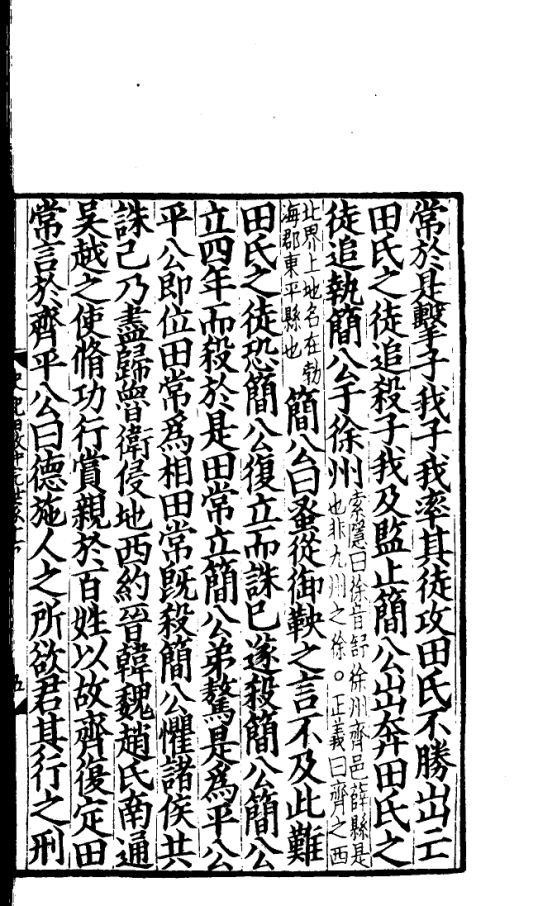 常於是擊子我子我率其徒攻田氏不勝出亡
田氏之徒追殺子我及監止簡公出奔田氏之
徒追執簡公于徐州索隱曰徐音舒徐州齊邑薛縣是
也非九州之徐○正義曰齊之西
北界上地名在勃
海郡東平縣也簡公曰蚤從御鞅之言不及此難
田氏之徒恐簡公復立而誅已遂殺簡公簡公
立四年而殺於是田常立簡公弟驁是爲平公
平公即位田常爲相田常旣殺簡公懼諸侯共
誅己乃盡歸魯衛侵地西約晉韓魏趙氏南通
吴越之使脩功行賞親於百姓以故齊復定田
常言於齊平公曰德施人之所欲君其行之刑
五